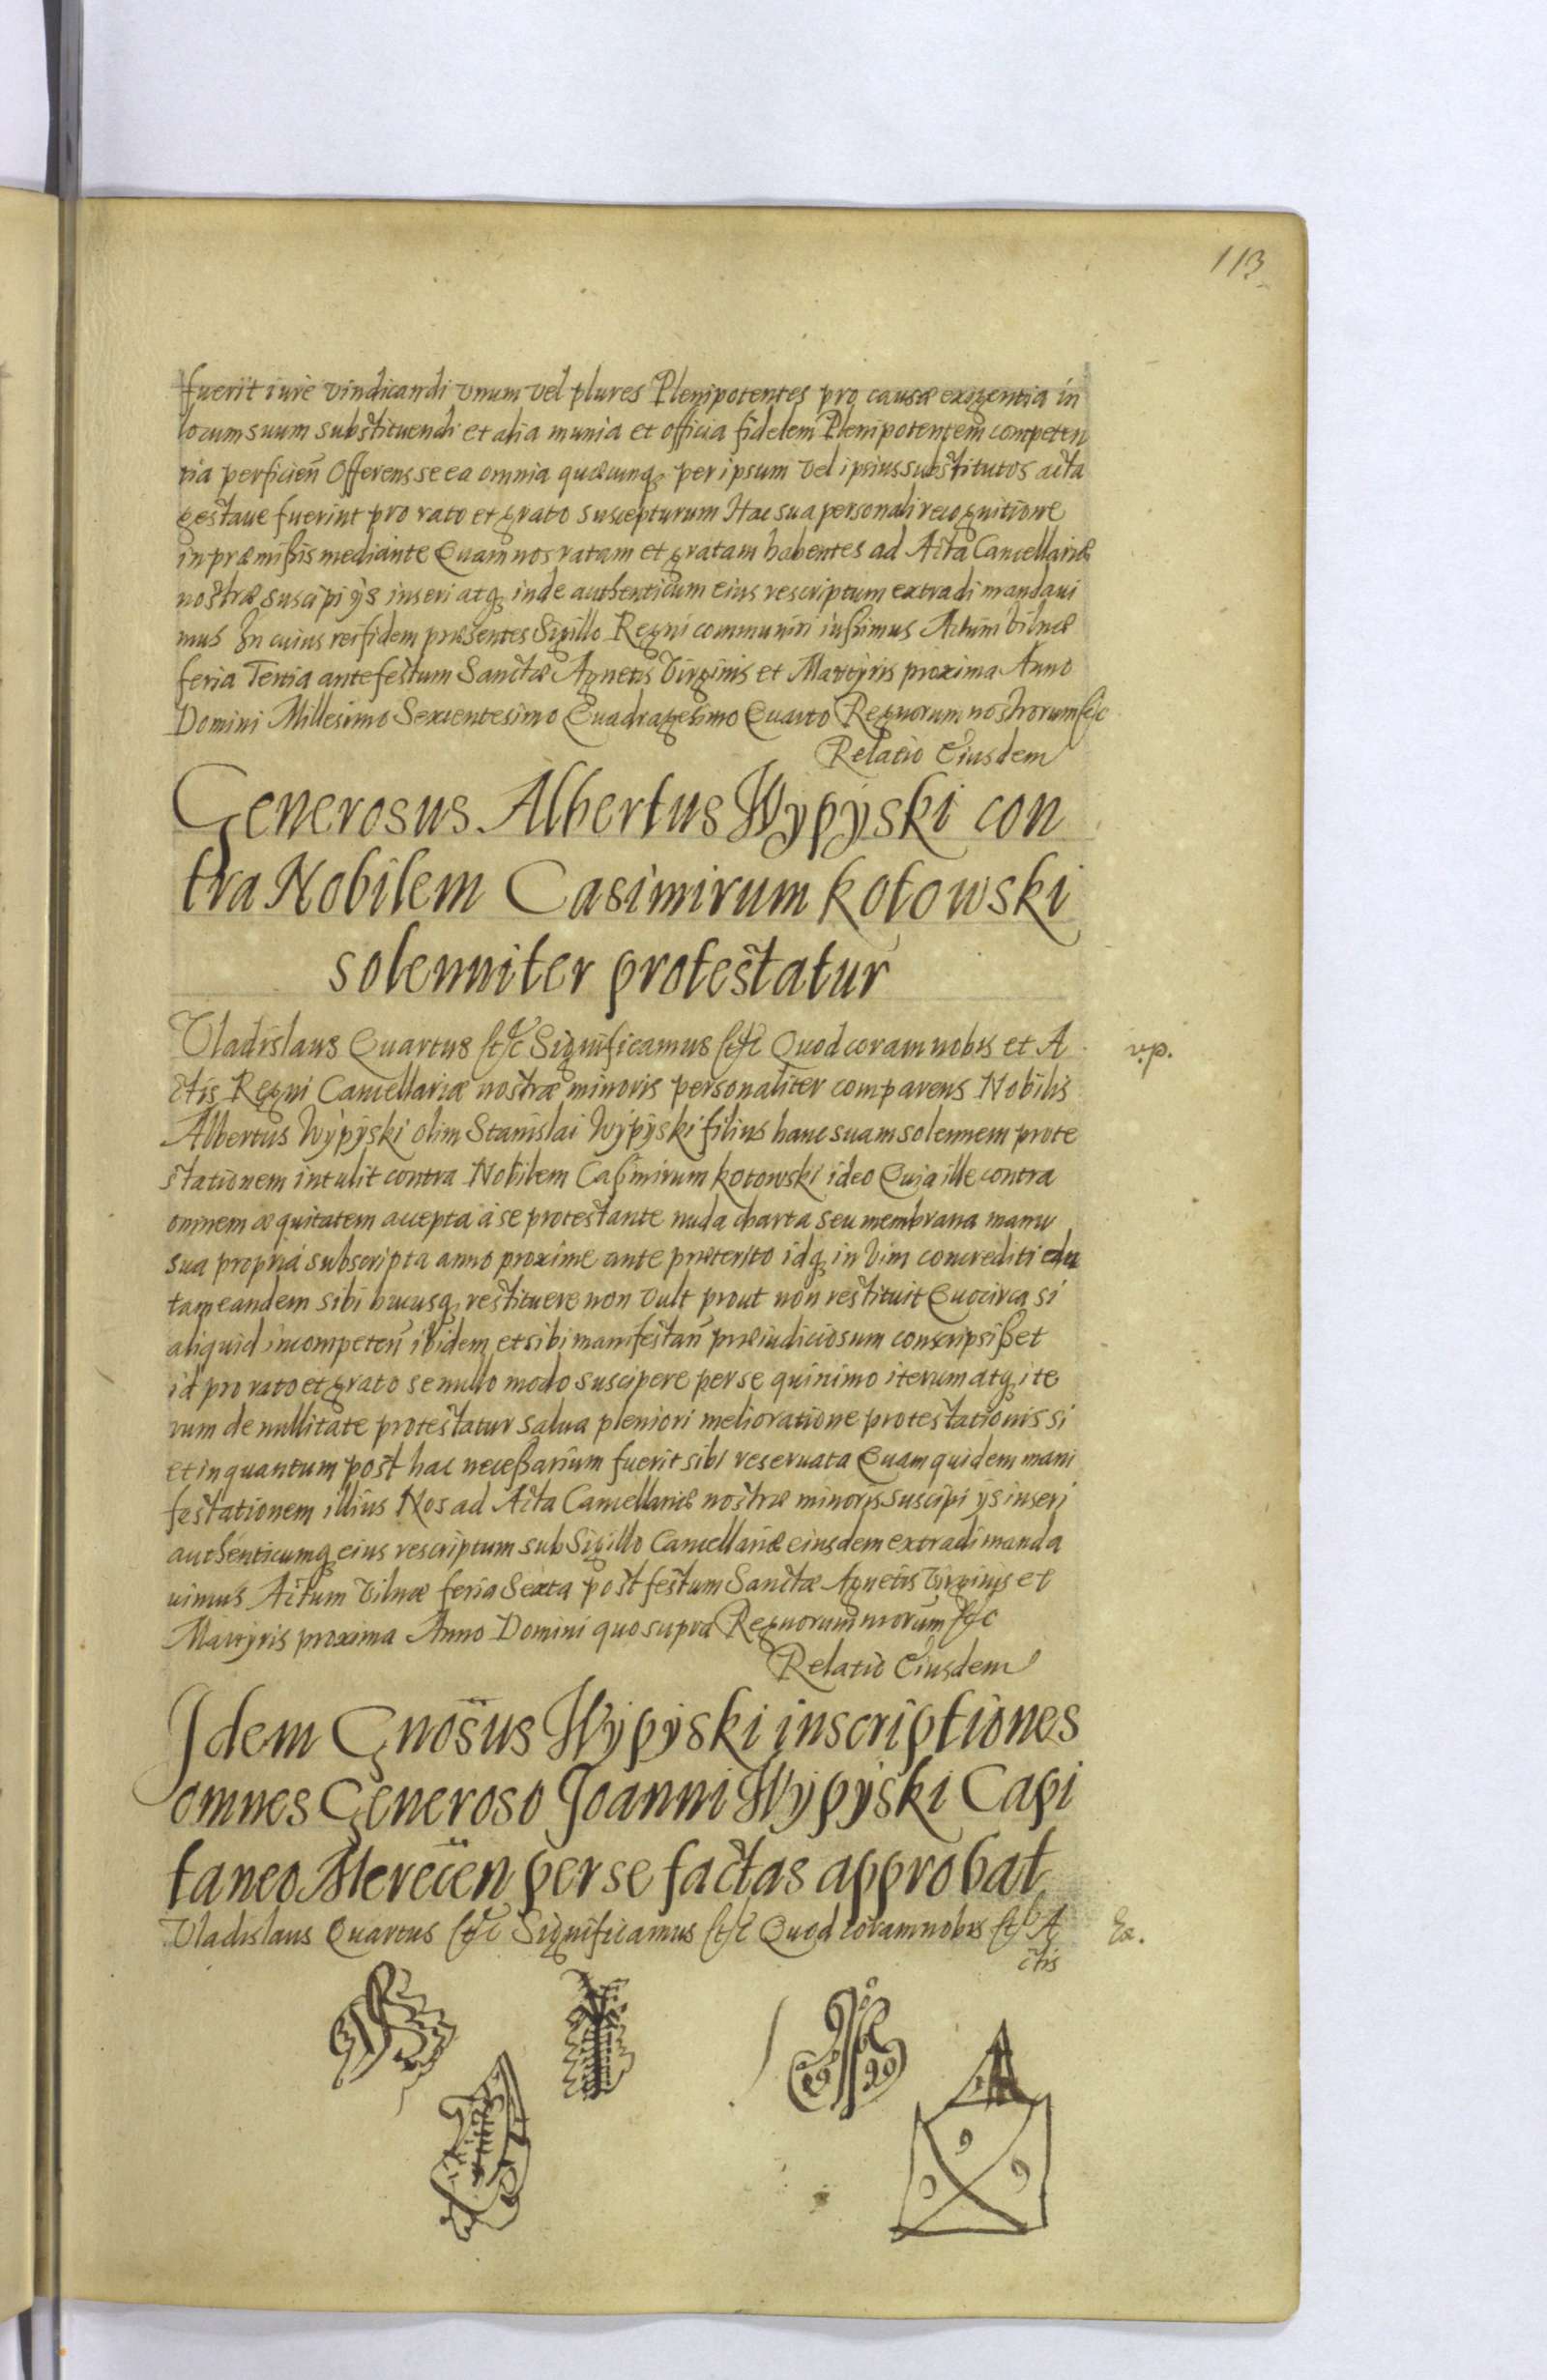 113
fuerit iure vindicandi vnum vel plures Plenipotentes pro causæ exigentia in
locum suum substituendi et alia munia et officia fidelem Plenipotentem competen
tia perficien̄ Offerens se ea omnia quæcunq; per ipsum vel ipsius substitutos acta
gestaue fuerint pro rato et grato suscepturum Hac sua personali recognitione
in præmißis mediante Quam nos ratam et gratam habentes ad Acta Cancellariæ
nostræ suscipi ÿs inseri atq; inde authenticum eius rescriptum extradi mandaui
mus In cuius rei fidem præsentes Sigillo Regni communiri iußimus Actum Vilnæ
feria Tertia ante festum Sanctæ Agnetis Virginis et Martyris proxima Anno
Domini Millesimo Sexcentesimo Quadragesimo Quarto Regnorum nostrorum etc
Relatio Eiusdem
Generosus Albertus Wypÿski con
tra Nobilem Casimirum Kotowski
solenniter protestatur
Vladislaus Quartus etc Significamus etc Quod coram nobis et A
v.p.
ctis Regni Cancellariæ nostræ minoris personaliter comparens Nobilis
Albertus Wÿpÿski olim Stanislai Wÿpÿski filius hanc suam solennem prote
stationem intulit contra Nobilem Casimirum Kotowski ideo Quia ille contra
omnem æquitatem accepta a se protestante nuda charta seu membrana manu
sua propria subscripta anno proxime ante præterito idq; in Vim concrediti
tam eandem sibi hucusq; restituere non vult prout non restituit Quocirca si
aliquid incompeten̄ ibidem et sibi manifestan̄ præiudiciosum conscripsißet
id pro rato et grato se nullo modo suscipere per se quinimo iterum atq; ite
rum de nullitate protestatur salua pleniori melioratione protestationis si
et in quantum post hac neceßarium fuerit sibi reseruata Quam quidem mani
festationem illius Nos ad Acta Cancellariæ nostræ minoris suscipi ÿs inseri
authenticumq; eius rescriptum sub Sigillo Cancellariæ eiusdem extradi manda
uimus Actum Vilnæ feria Sexta post festum Sanctæ Agnetis Virginis et
Martyris proxima Anno Domini quo supra Regnorum nrorum etc
Relatio Eiusdem
Idem Gnosus Wÿpÿski inscriptiones
omnes Generoso Joanni Wÿpÿski Capi
taneo Merecen̄ per se factas approbat
Vladislaus Quartus etc Significamus etc Quod coram nobis et A
Ex.
ctis